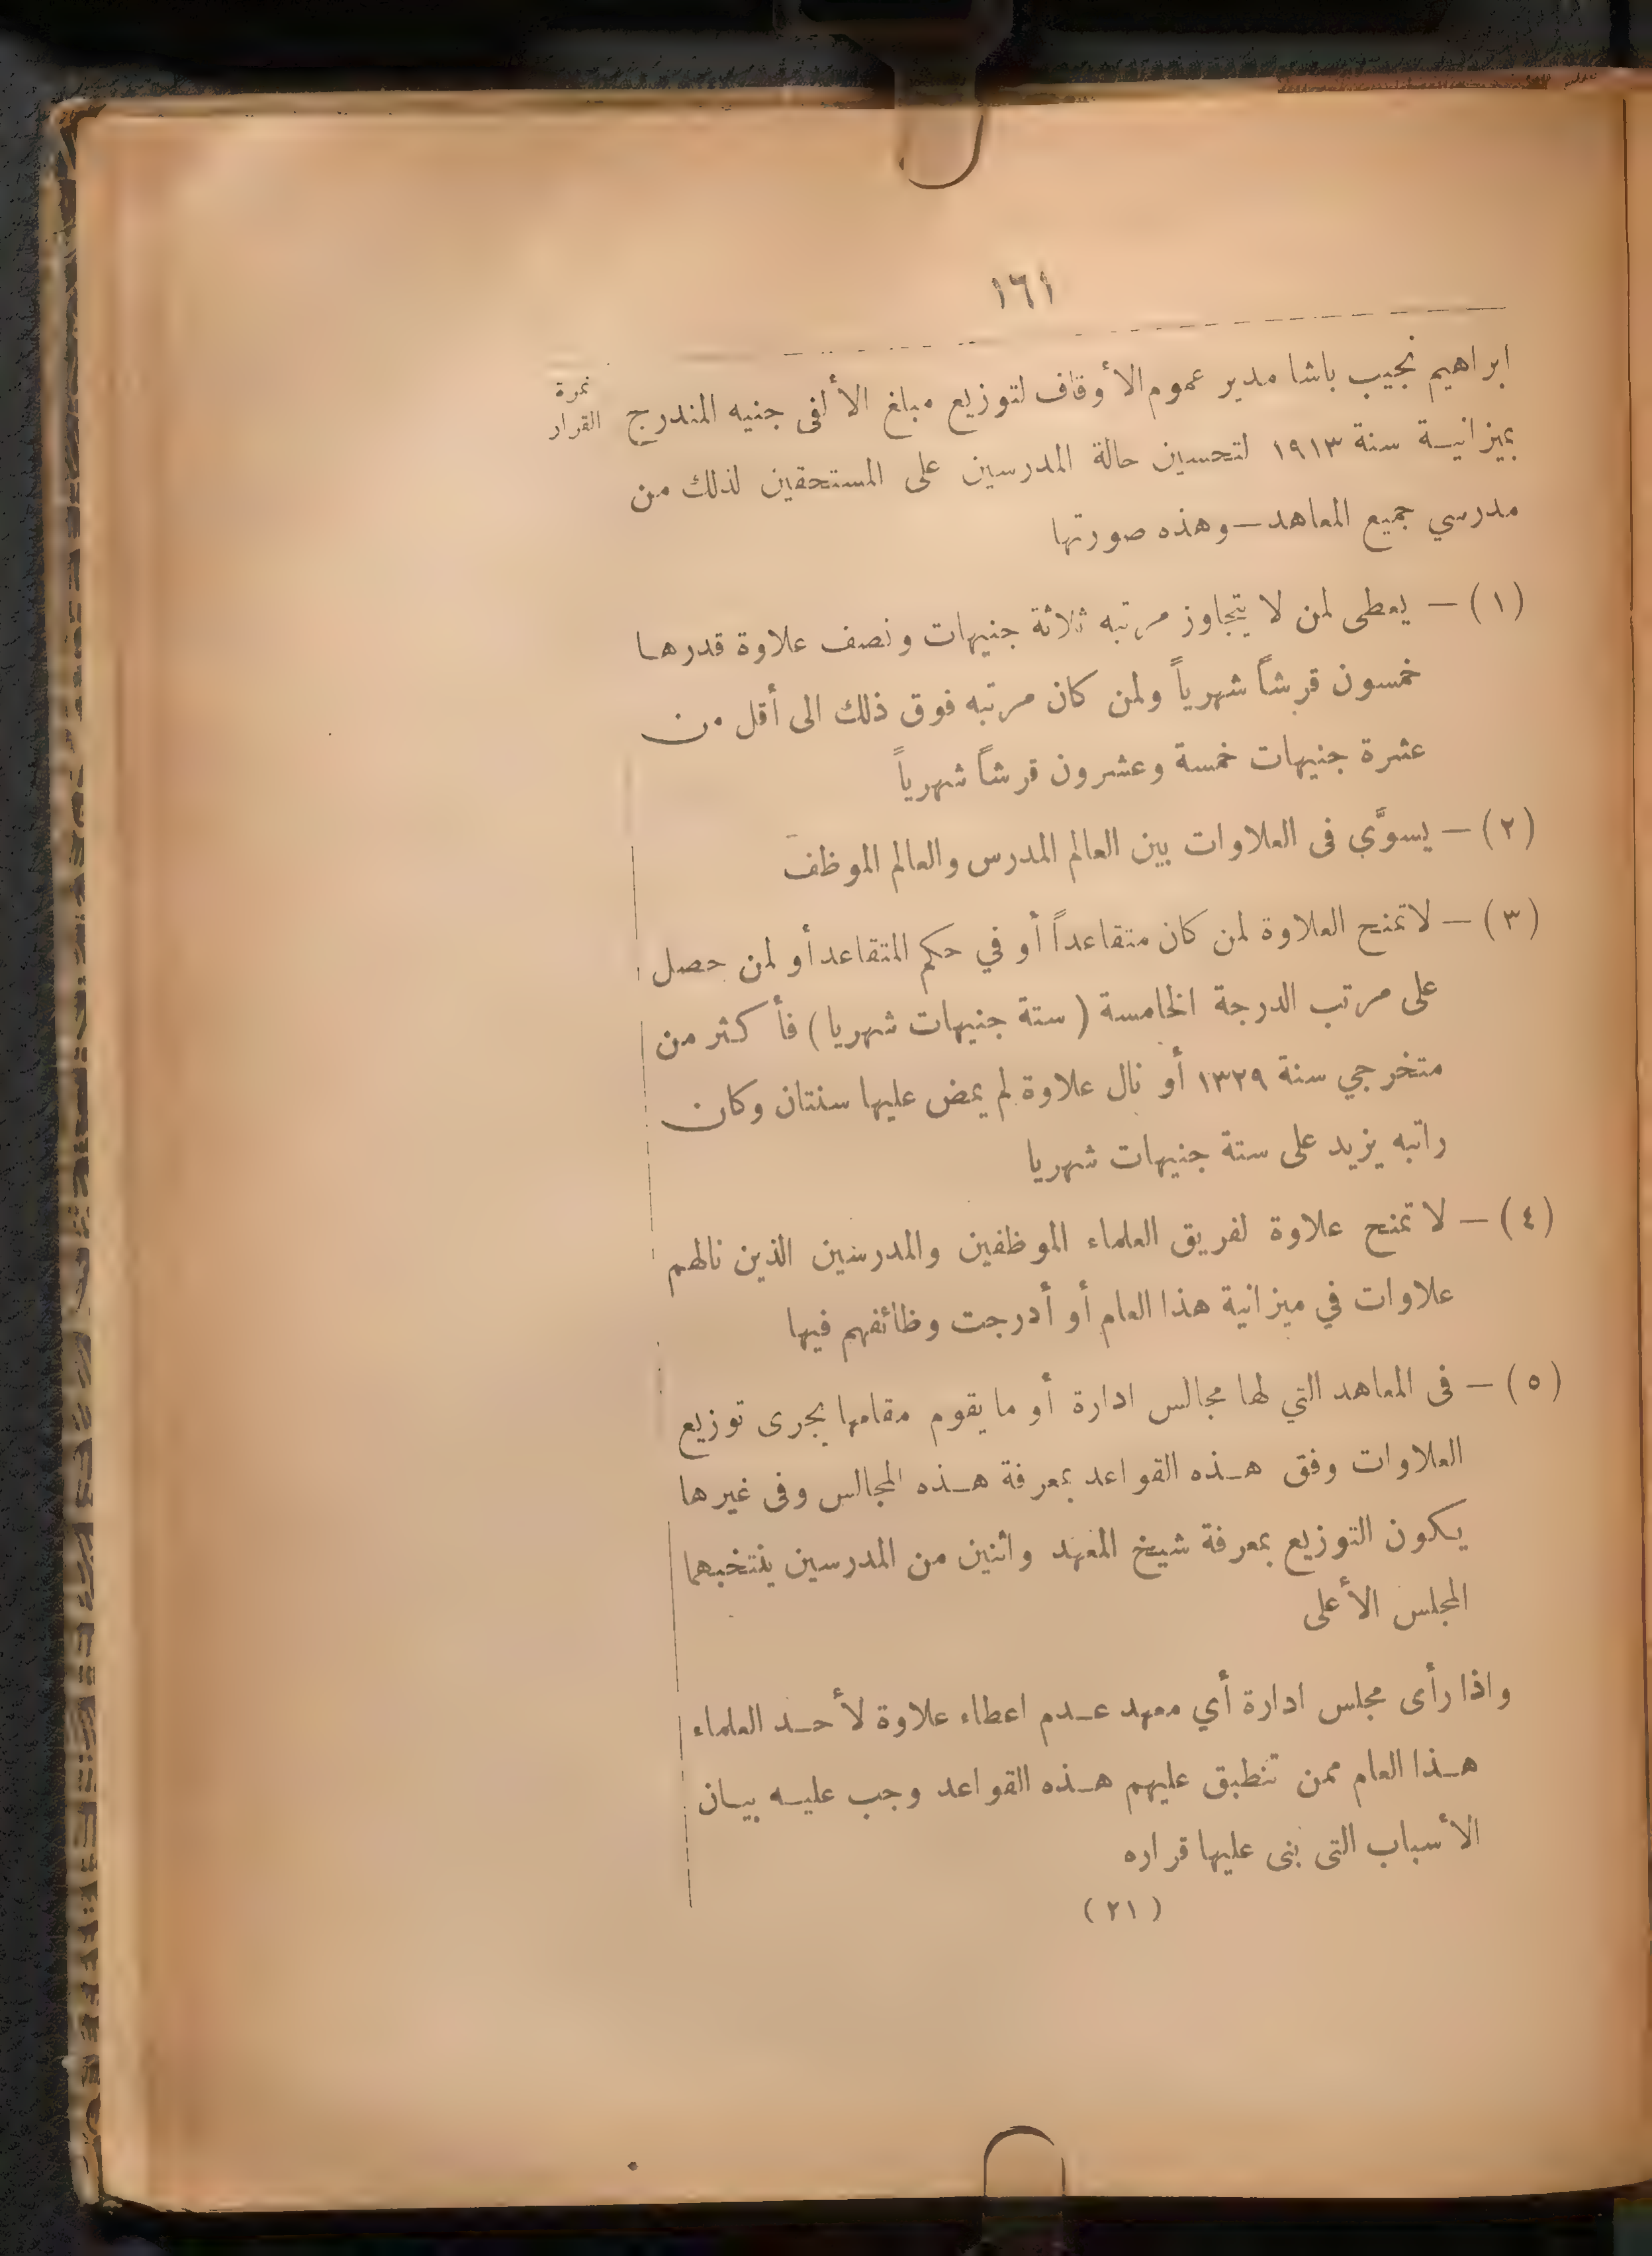 ١٦١
نمرة
القرار
ابراهيم نجيب باشا مدير عموم الأوقاف لتوزيع مبلغ الألفى جنيه المندرج
بميزانيـة سنة ١٩١٣ لتحسين حالة المدرسين على المستحقين لذلك من
مدرسي جميع المعاهد — وهذه صورتها
(١) — يعطى لمن لا يتجاوز مرتبه ثلاثة جنيهات ونصف علاوة قدرهـا
خمسون قرشاً شهرياً ولمن كان مرتبه فوق ذلك الى أقل من
عشرة جنيهات خمسة وعشرون قرشاً شهرياً
(٢) — يسوَّي فى العلاوات بين العالم المدرس والعالم الموظف
(٣) — لاتمنح العلاوة لمن كان متقاعداً أو في حكم المتقاعد أو لمن حصل
على مرتب الدرجة الخامسة (ستة جنيهات شهريا) فأكثر من
متخرجي سنة ١٣٢٩ أو نال علاوة لم يمض عليها سنتان وكان
راتبه يزيد على ستة جنيهات شهريا
(٤) — لا تمنح علاوة لفريق العلماء الموظفين والمدرسين الذين نالهم
علاوات في ميزانية هذا العام أو أدرجت وظائفهم فيها
(٥) — فى المعاهد التي لها مجالس ادارة أو ما يقوم مقامها يجرى توزيع
العلاوات وفق هـذه القواعد بمعرفة هـذه المجالس وفى غيرها
يكون التوزيع بمعرفة شيخ المعهد واثنين من المدرسين ينتخبهما
المجلس الأعلى
واذا رأى مجلس ادارة أي معهد عـدم اعطاء علاوة لأحـد العلماء
هـذا العام ممن تنطبق عليهم هـذه القواعد وجب عليـه بيـان
الأسباب التى بنى عليها قراره
(٢١)